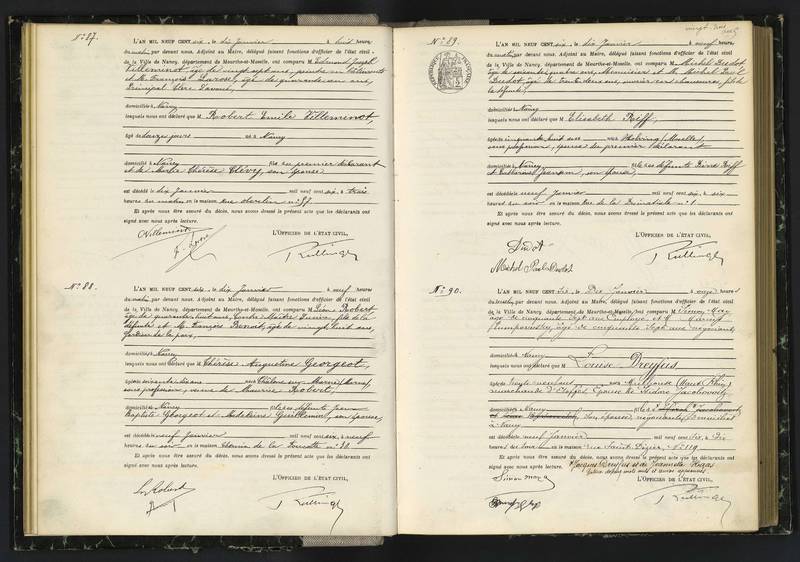 N° 87.
L'AN MIL NEUF CENT six, le dix Janvier à huit heures
du matin, par devant nous, Adjoint au Maire, délégué faisant fonctions d'officier de l'état civil
de la Ville de Nancy, département de Meurthe-et-Moselle, ont comparu M. Edmond Joseph
Villeminot, âgé de vingt sept ans, peintre en bâtiments
et M. François âgé de quarante un ans,
principal clerc d'avoué,
domiciliés à Nancy
lesquels nous ont déclaré que M. Robert Emile Villeminot
âgé de quinze jours né à Nancy
domicilié à Nancy fils du premier déclarant
et de Marie Thérèse Clévy, son épouse
est décédé le dix Janvier mil neuf cent six, à trois
heures du matin, en la maison rue chevalier n° 57.
Et après nous être assuré du décès, nous avons dressé le présent acte que les déclarants ont
signé avec nous après lecture.
L'OFFICIER DE L'ÉTAT CIVIL,
Villeminot
N° 88.
L'AN MIL NEUF CENT six, le dix Janvier à neuf heures
du matin, par devant nous, Adjoint au Maire, délégué faisant fonctions d'officier de l'état civil
de la Ville de Nancy, département de Meurthe-et-Moselle, ont comparu M. Léon Robert
âgé de quarante huit ans, fils de la
défunte et M. François Benoit, âgé de vingt huit ans,
gardien de la paix,
domiciliés à Nancy
lesquels nous ont déclaré que M. Thérèse Augustine Georgeot,
âgée soixante dix ans née Châlons sur Marne (Marne)
sans profession, veuve de Maurice Robert,
domicilié à Nancy fille des défunts Jean
Baptiste Georgeot et Madeleine Guillemin, son épouse
est décédée le neuf Janvier mil neuf cent six, à neuf
heures du soir en la maison Chemin de la n° 38.
Et après nous être assuré du décès, nous avons dressé le présent acte que les déclarants ont
signé avec nous après lecture.
L'OFFICIER DE L'ÉTAT CIVIL,
Robert
N° 89.
L'AN MIL NEUF CENT six, le dix Janvier à neuf heures
du matin, par devant nous, Adjoint au Maire, délégué faisant fonctions d'officier de l'état civil
de la Ville de Nancy, département de Meurthe-et-Moselle, ont comparu M. Michel Diedot
âgé de soixante quatre ans, et M. Michel Paul
Diedot, âgé de trente deux ans, ouvrier en chaussures, fils de
la défunte,
domiciliés à Nancy
lesquels nous ont déclaré que M. Elisabeth Reiff,
âgée de cinquante huit ans née (Moselle)
sans profession, épouse du premier déclarant
domiciliée à Nancy fille des défunts Pierre Reiff
et Catherine son épouse,
est décédée le neuf Janvier mil neuf cent six, à six
heures du soir en la maison rue de la Primatiale n° 1.
Et après nous être assuré du décès, nous avons dressé le présent acte que les déclarants ont
signé avec nous après lecture.
L'OFFICIER DE L'ÉTAT CIVIL,
Michel Paul Diedot
N° 90.
L'AN MIL NEUF CENT Six, le Dix Janvier à onze heures
du matin, par devant nous, Adjoint au Maire, délégué faisant fonctions d'officier de l'état civil
de la Ville de Nancy, département de Meurthe-et-Moselle, ont comparu M. Simon May
âgé de cinquante sept ans Employé, et M.
âgé de cinquante sept ans négociant,
domiciliés à Nancy
lesquels nous ont déclaré que M. Louise Dreyfus
âgée de trente neuf ans née Mulhouse (Haut Rhin)
marchande d'étoffes Epouse de Isidore Jacobowitz
domiciliée à Nancy
son épouse, négociants Domiciliés
à Nancy
est décédée le neuf Janvier mil neuf cent Six, à Dix
heures du soir en la maison rue Saint Dizier, N° 119
Et après nous être assuré du décès, nous avons dressé le présent acte que les déclarants ont
signé avec nous après lecture. Jacques Dreyfus et de Jeannette
L'OFFICIER DE L'ÉTAT CIVIL,
Simon May